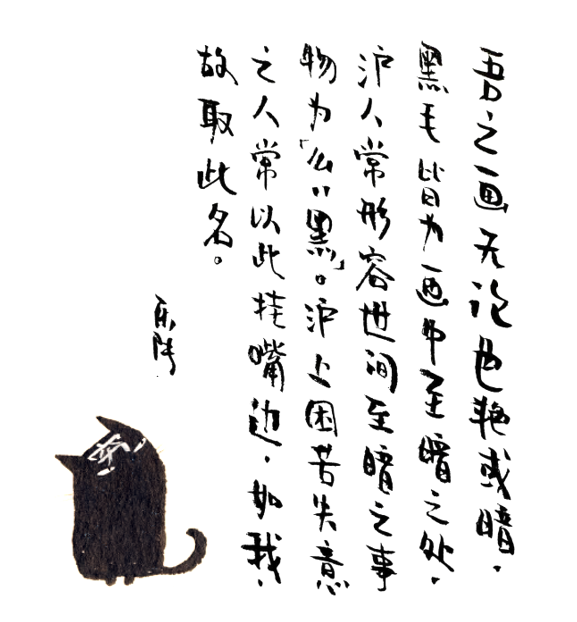 吾之画无论色艳或暗，
黑毛皆为画中至暗之处，
沪人常形容世间至暗之事
物为「么〃黑」。沪上困苦失意
之人常以此挂嘴边，如我，
故取此名。